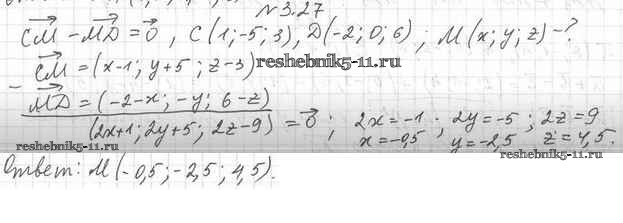 № 3.27
CM - MD = 0, C(1; -5; 3), D(-2; 0; 6); M(x; y; z) - ?
CM = (x-1; y+5; z-3) reshebnik5-11.ru
- MD = (-2-x; -y; 6-z)
(2x+1; 2y+5; 2z-9) = 0; 2x = -1; 2y = -5; 2z = 9
reshebnik5-11.ru x = -0,5 y = -2,5 z = 4,5.
reshebnik5-11.ru
Ответ: M(-0,5; -2,5; 4,5).